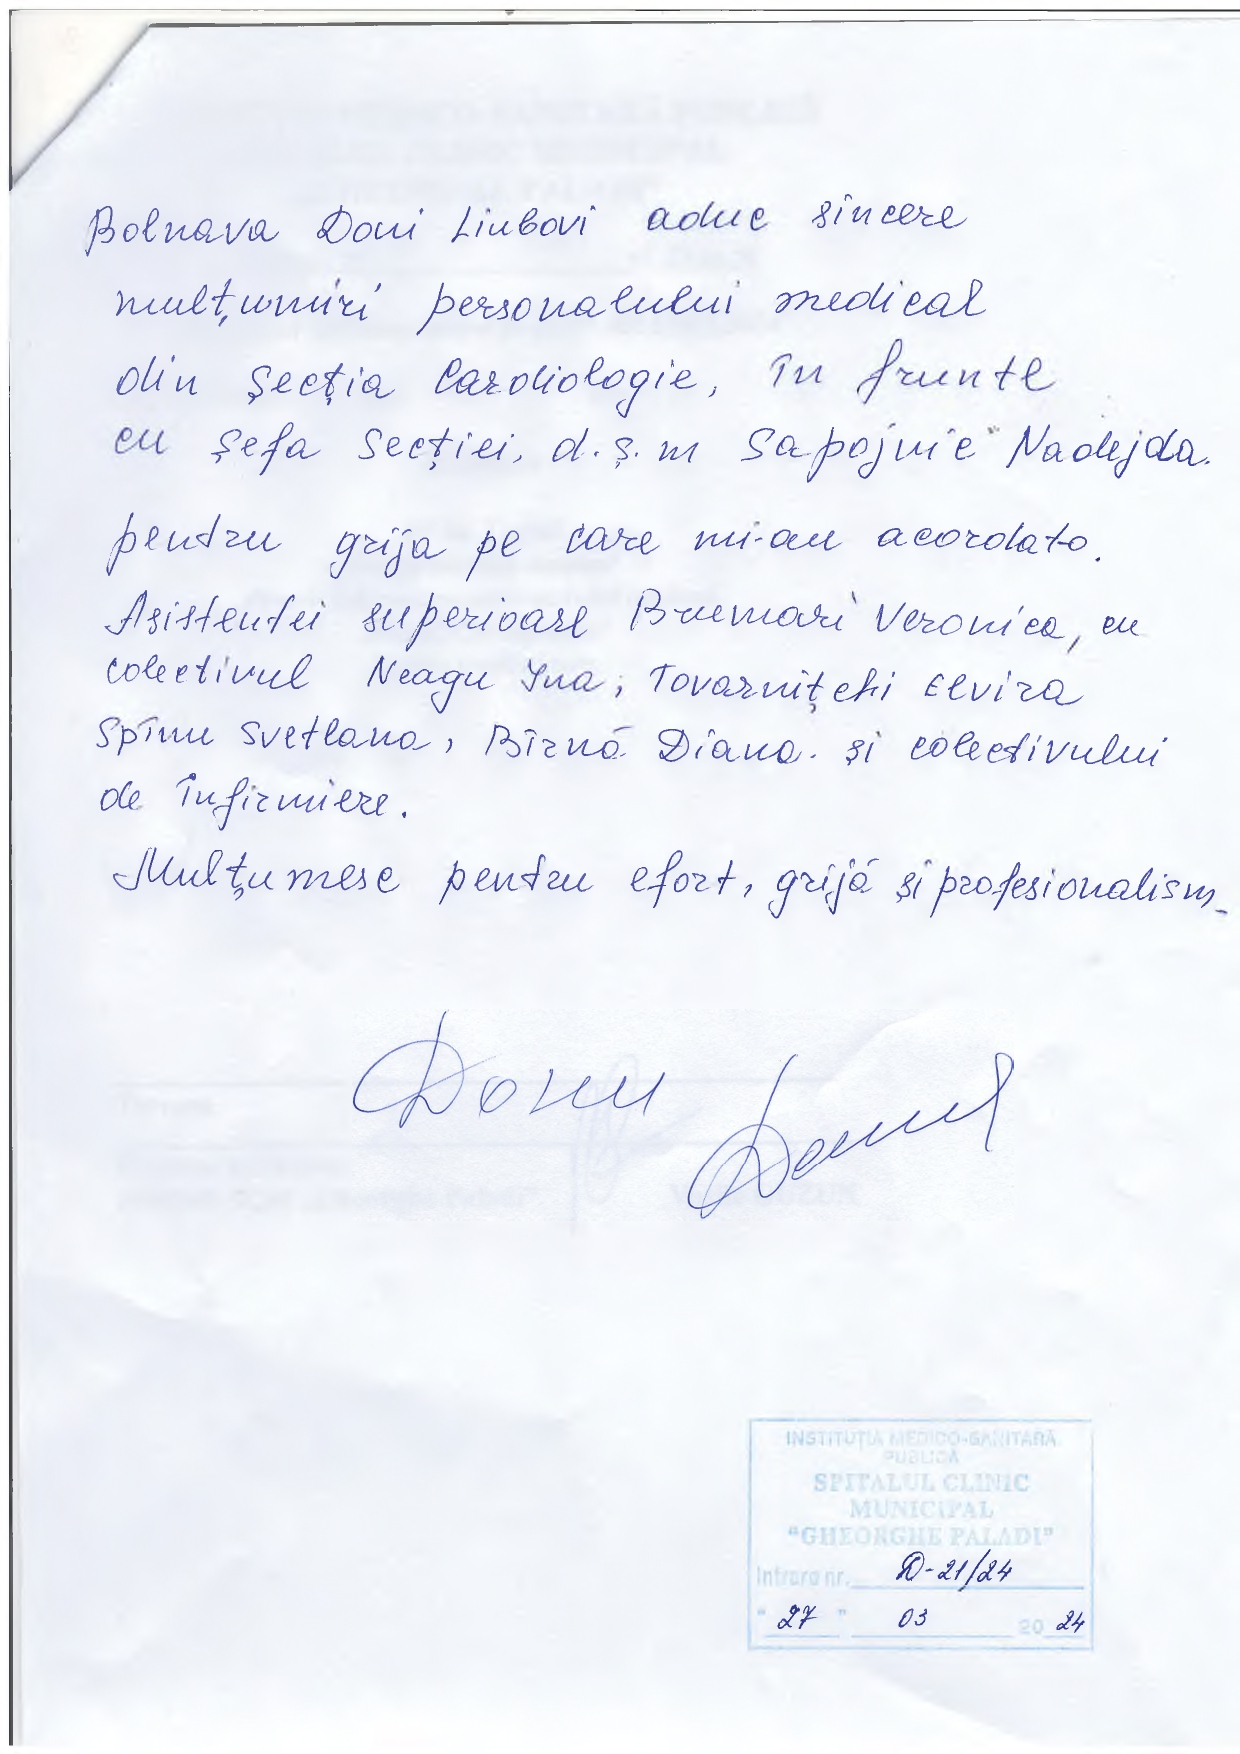 Bolnava Doni Liubovi aduc sincere
mulțumiri personalului medical
din Secția Cardiologie, în frunte
cu șefa Secției, d.ș.m Sapojnic Nadejda.
pentru grija pe care mi-au acordato.
Asistentei superioare Brumari Veronica, cu
colectivul Neagu Ina, Tovarnițchi Elvira
Spînu Svetlana, Bîrnă Diana. și colectivului
de înfirmiere.
Mulțumesc pentru efort, grijă și profesionalism.
INSTITUȚIA MEDICO-SANITARĂ
PUBLICĂ
SPITALUL CLINIC
MUNICIPAL
"GHEORGHE PALADI"
Intrare nr. D-21/24
"27" 03 2024